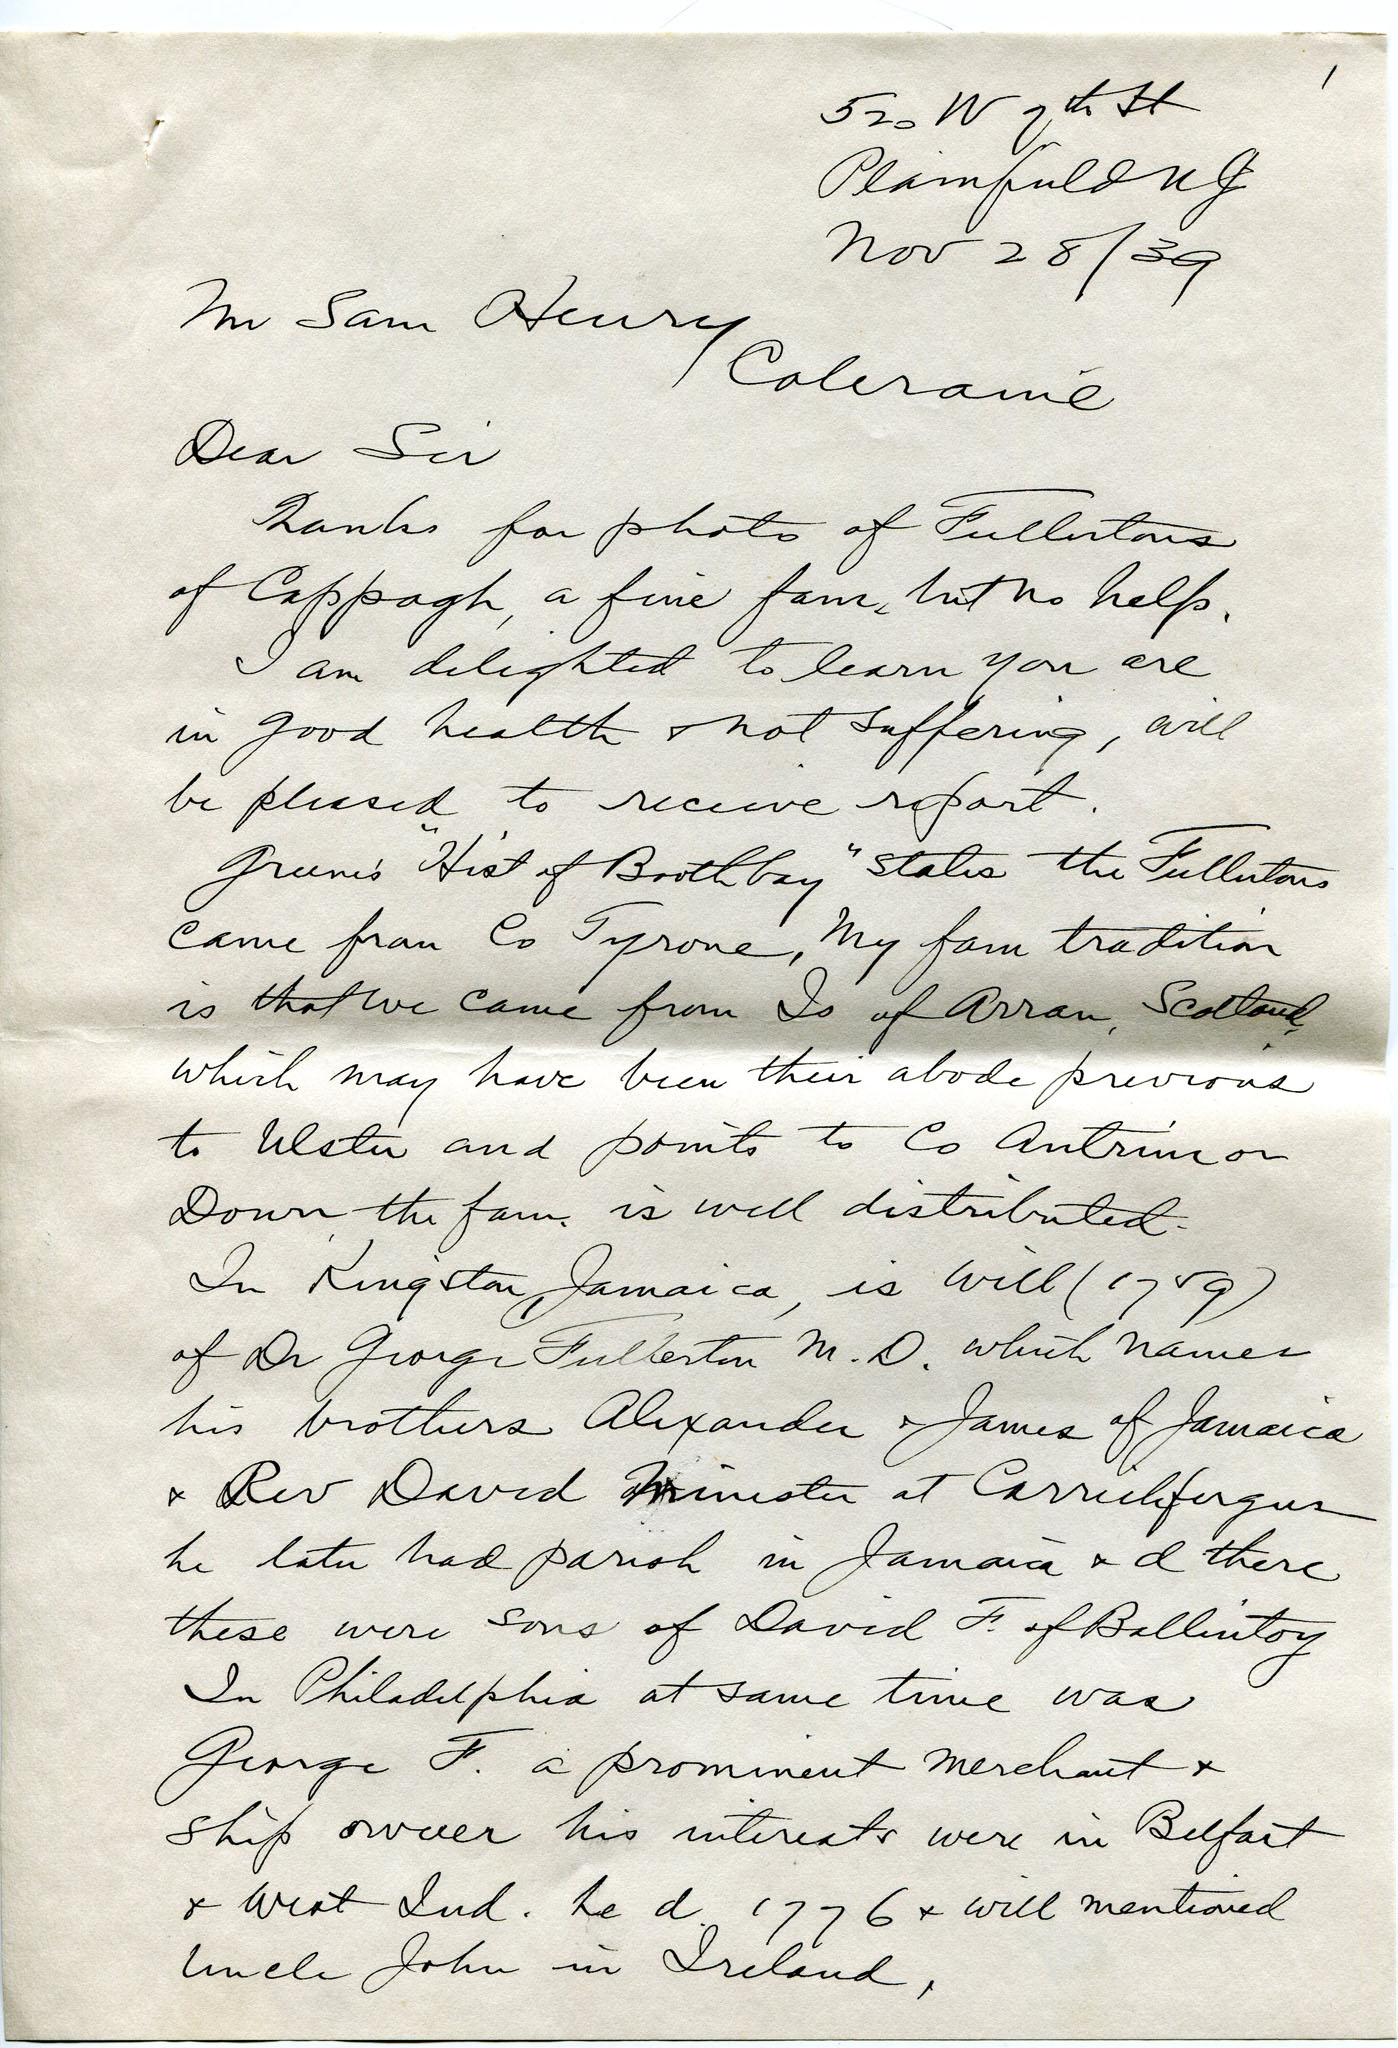 1
520 W 7th St
Plainfield NJ
Nov 28/39
Mr Sam Henry
Coleraine
Dear Sir
Thanks for photo of Fullertons
of Cappagh, a fine fam, but no help.
I am delighted to learn you are
in good health & not suffering, will
be pleased to receive report.
Greene's "Hist of Boothbay" states the Fullertons
came from Co Tyrone, My fam tradition
is that we came from Is of Arran, Scotland,
which may have been their abode previous
to Ulster and points to Co Antrim or
Down, the fam. is well distributed.
In Kingston, Jamaica, is will (1759)
of Dr George Fullerton M.D. which names
his brothers Alexander & James of Jamaica
& Rev David Minister at Carrickfergus
he later had parish in Jamaica & d there
these were sons of David F. of Ballintoy
In Philadelphia at same time was
George F. a prominent merchant &
ship owner his interests were in Belfast
& West Ind. he d. 1776 & will mentioned
Uncle John in Ireland,